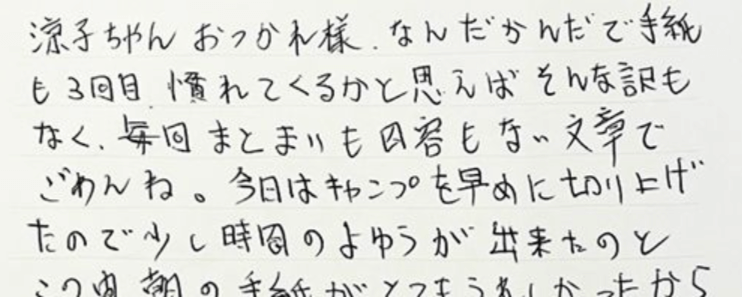 涼子ちゃん おつかれ様、なんだかんだで手紙
も3回目、慣れてくるかと思えば そんな訳も
なく、毎回 まとまりも内容もない文章で
ごめんね。今日はキャンプを早めに切り上げ
たので少し時間のよゆうが出来たのと
この間、朝の手紙がとってもうれしかったから